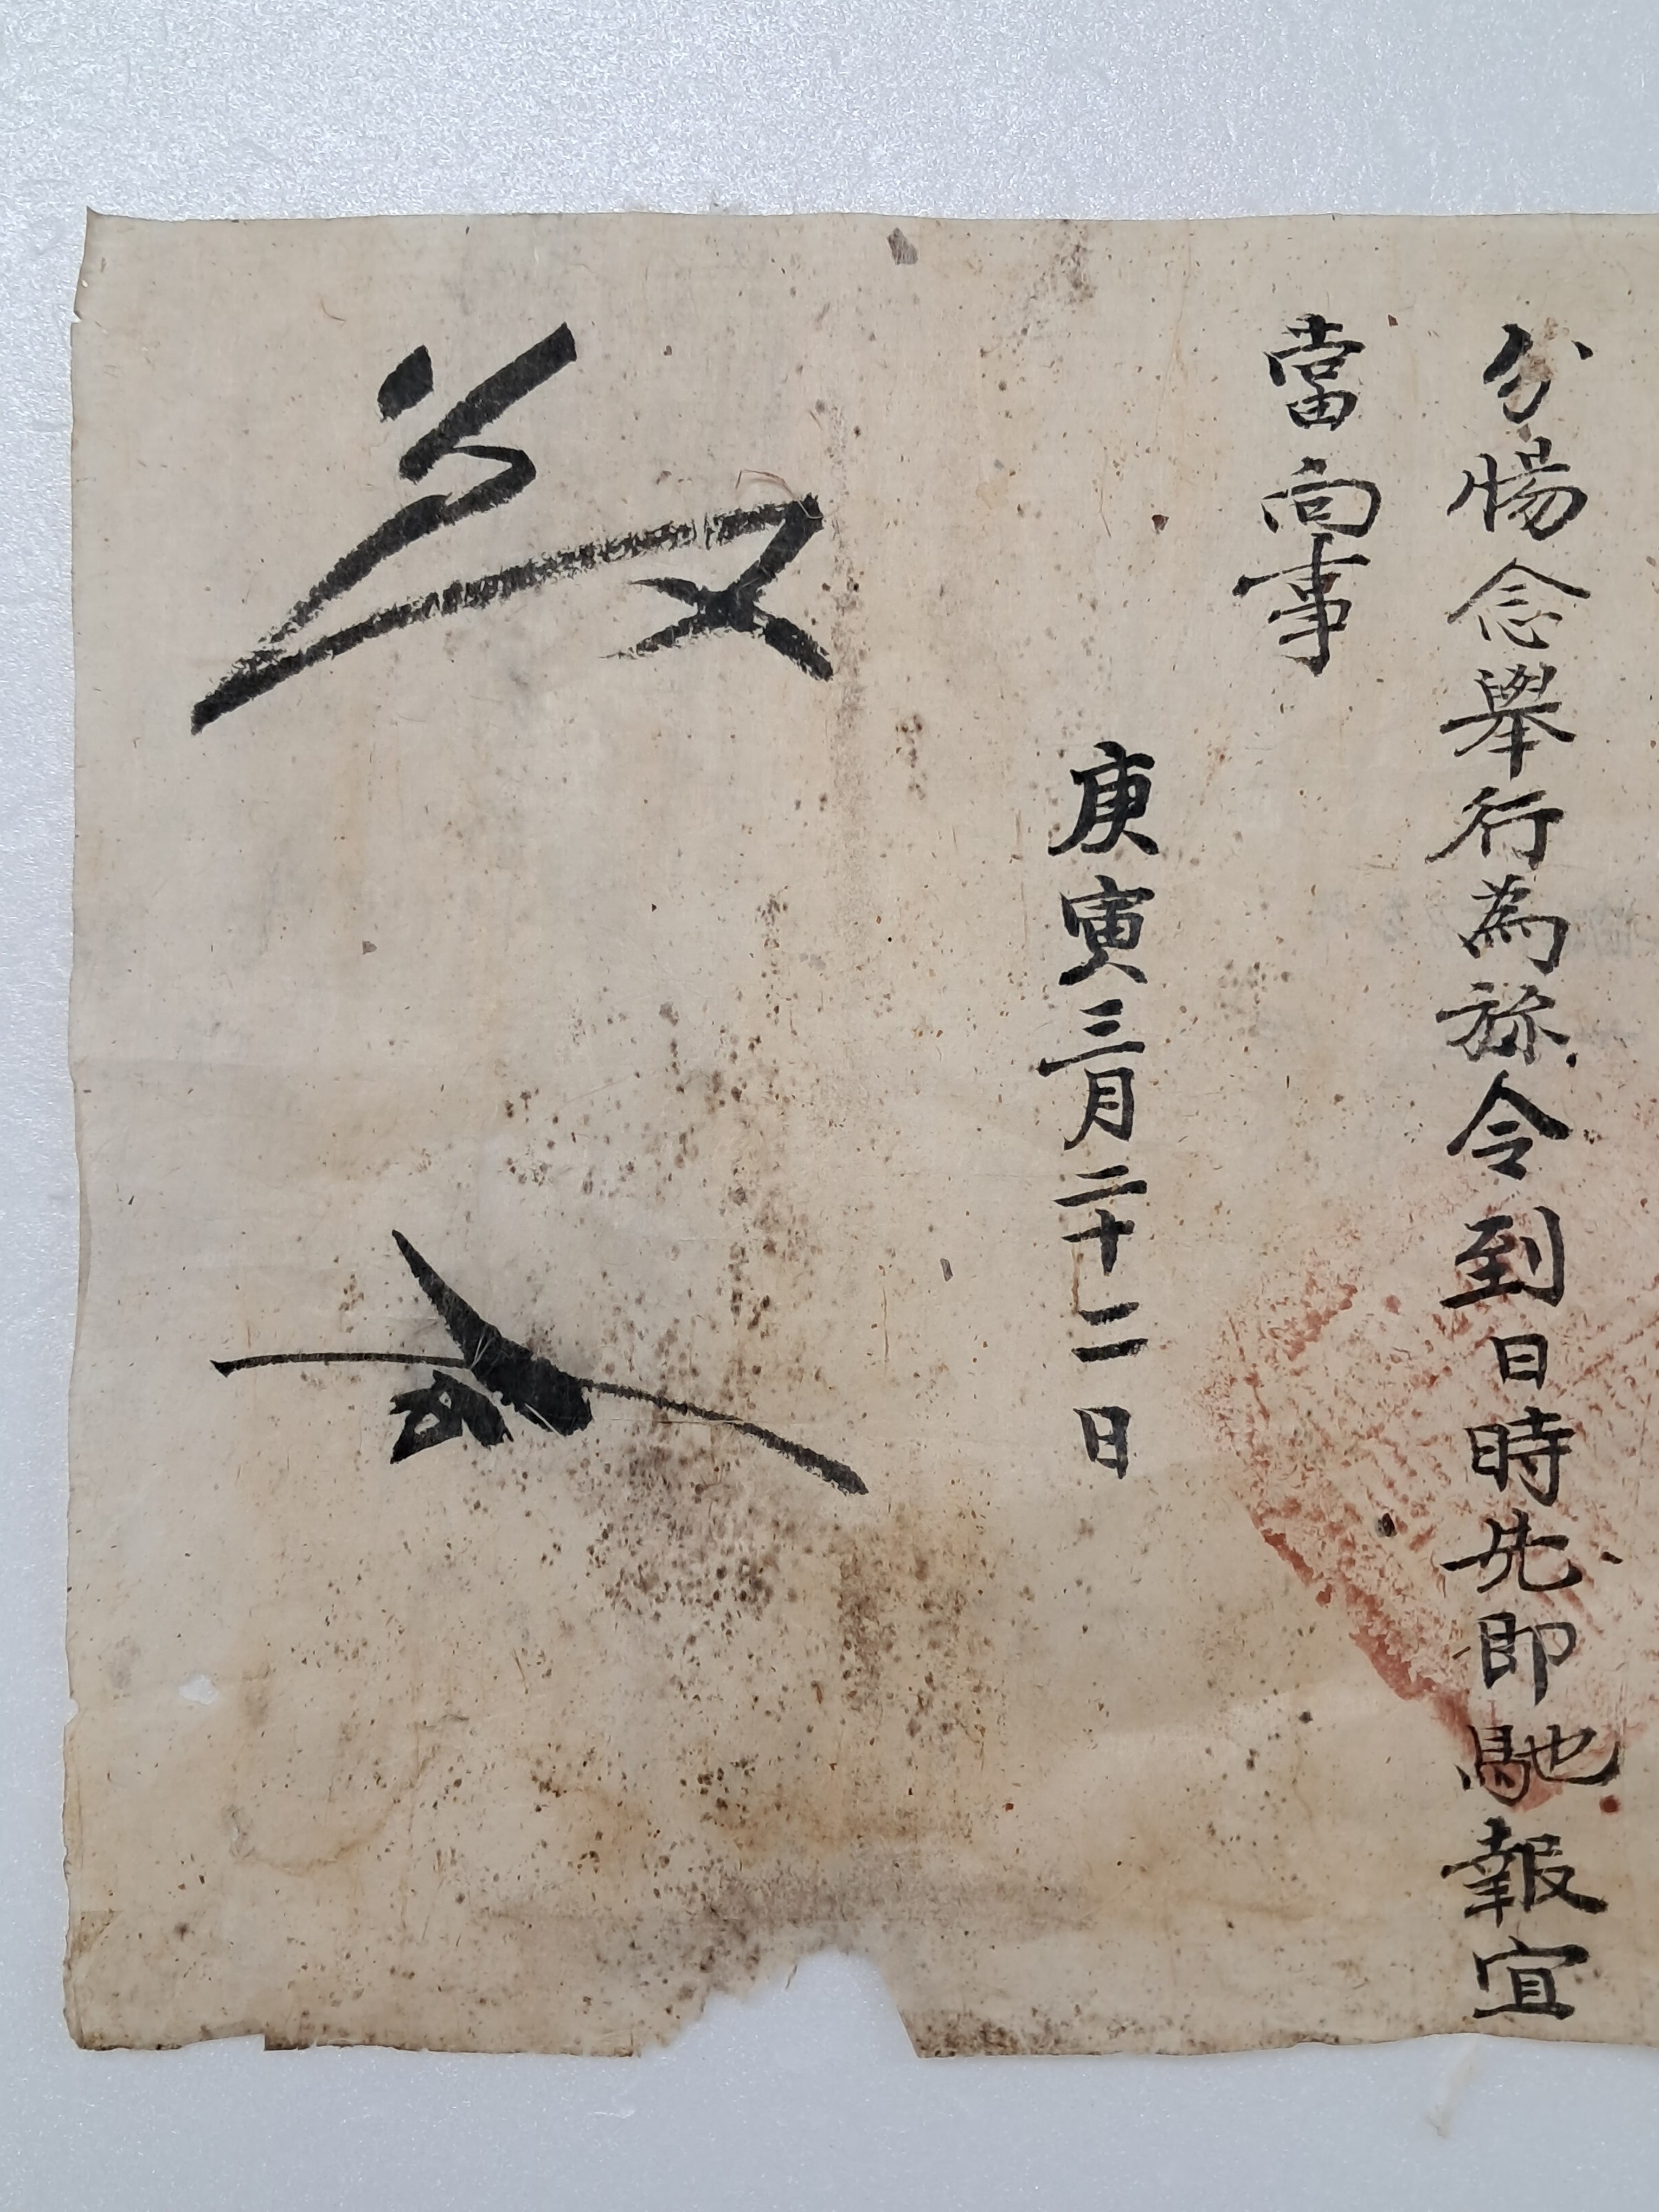 分惕念擧行為旀令到日時先即馳報宜
當向事
庚寅三月二十二日